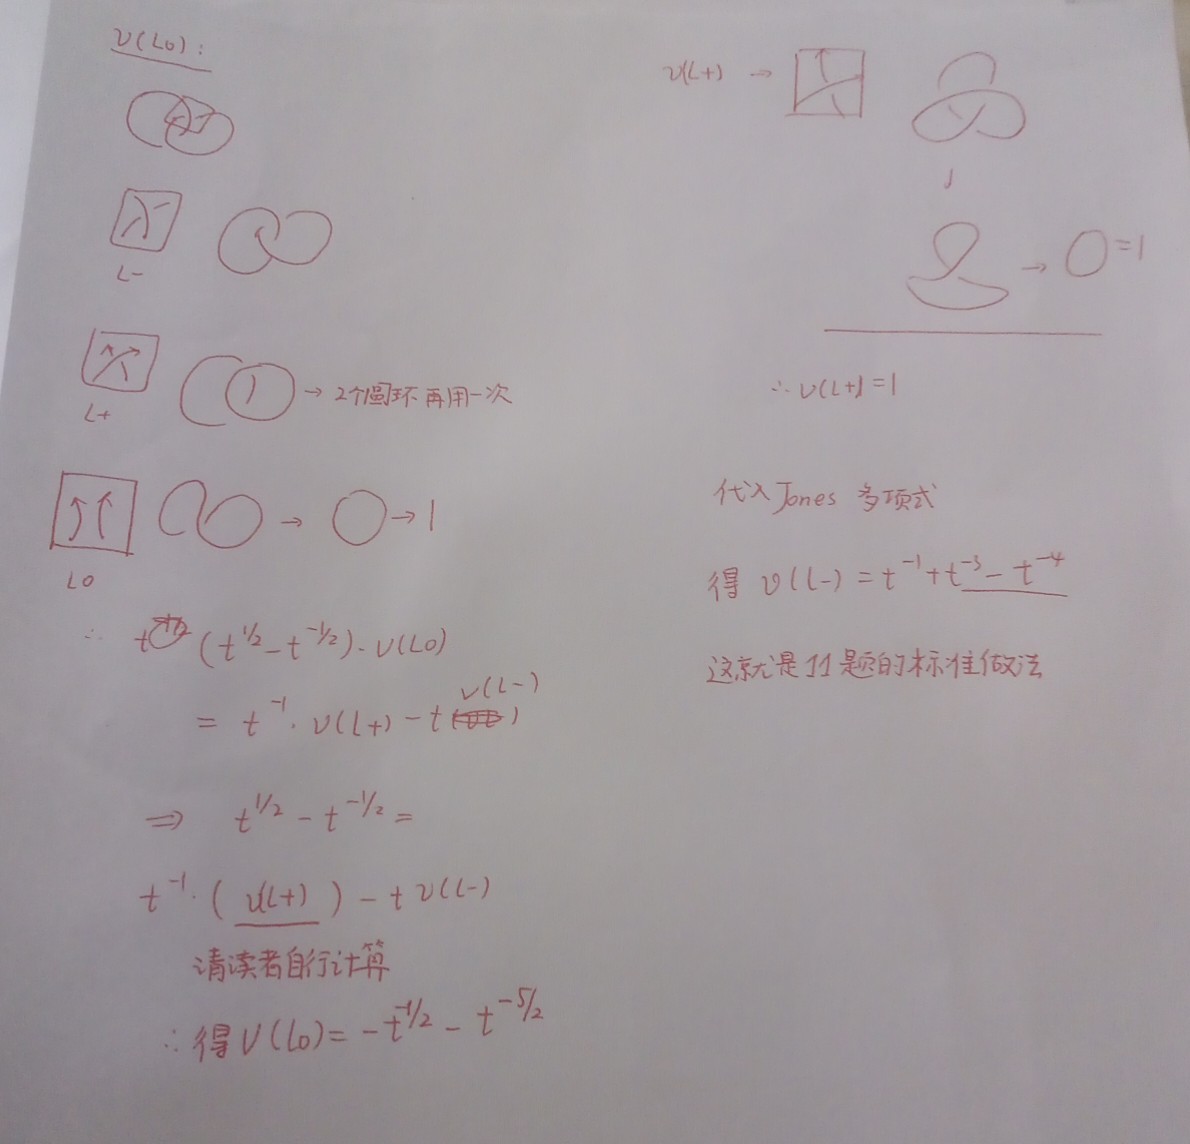 V(L0):
L-
L+
→ 2个圆环再用一次
L0
→ → 1
∴ (t^{1/2} - t^{-1/2}) · V(L0)
= t^{-1} · V(L+) - t V(L-)
⇒ t^{1/2} - t^{-1/2} =
t^{-1} · ( V(L+) ) - t V(L-)
请读者自行计算
∴ 得 V(L0) = -t^{-1/2} - t^{-5/2}
V(L+) →
→ = 1
∴ V(L+) = 1
代入 Jones 多项式
得 V(L-) = t^{-1} + t^{-3} - t^{-4}
这就是11题的标准做法